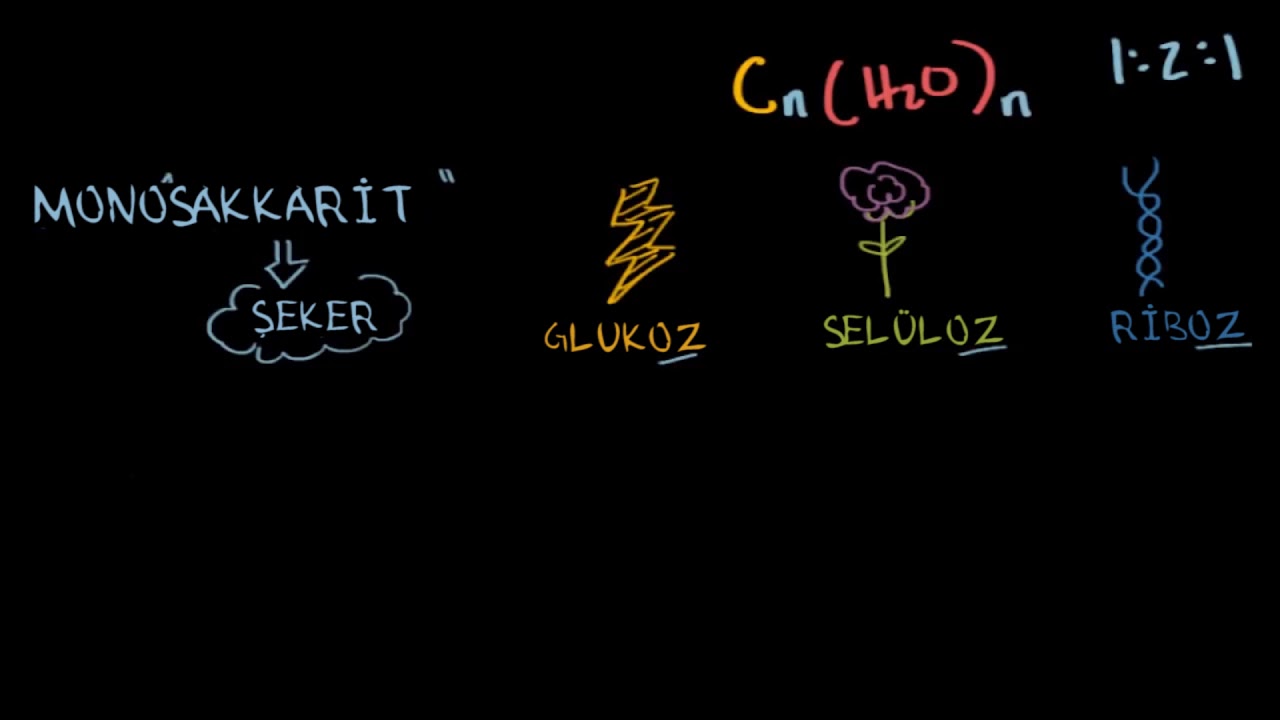 Cn(H2O)n 1:2:1
MONOSAKKARİT "
ŞEKER
GLUKOZ SELÜLOZ RİBOZ